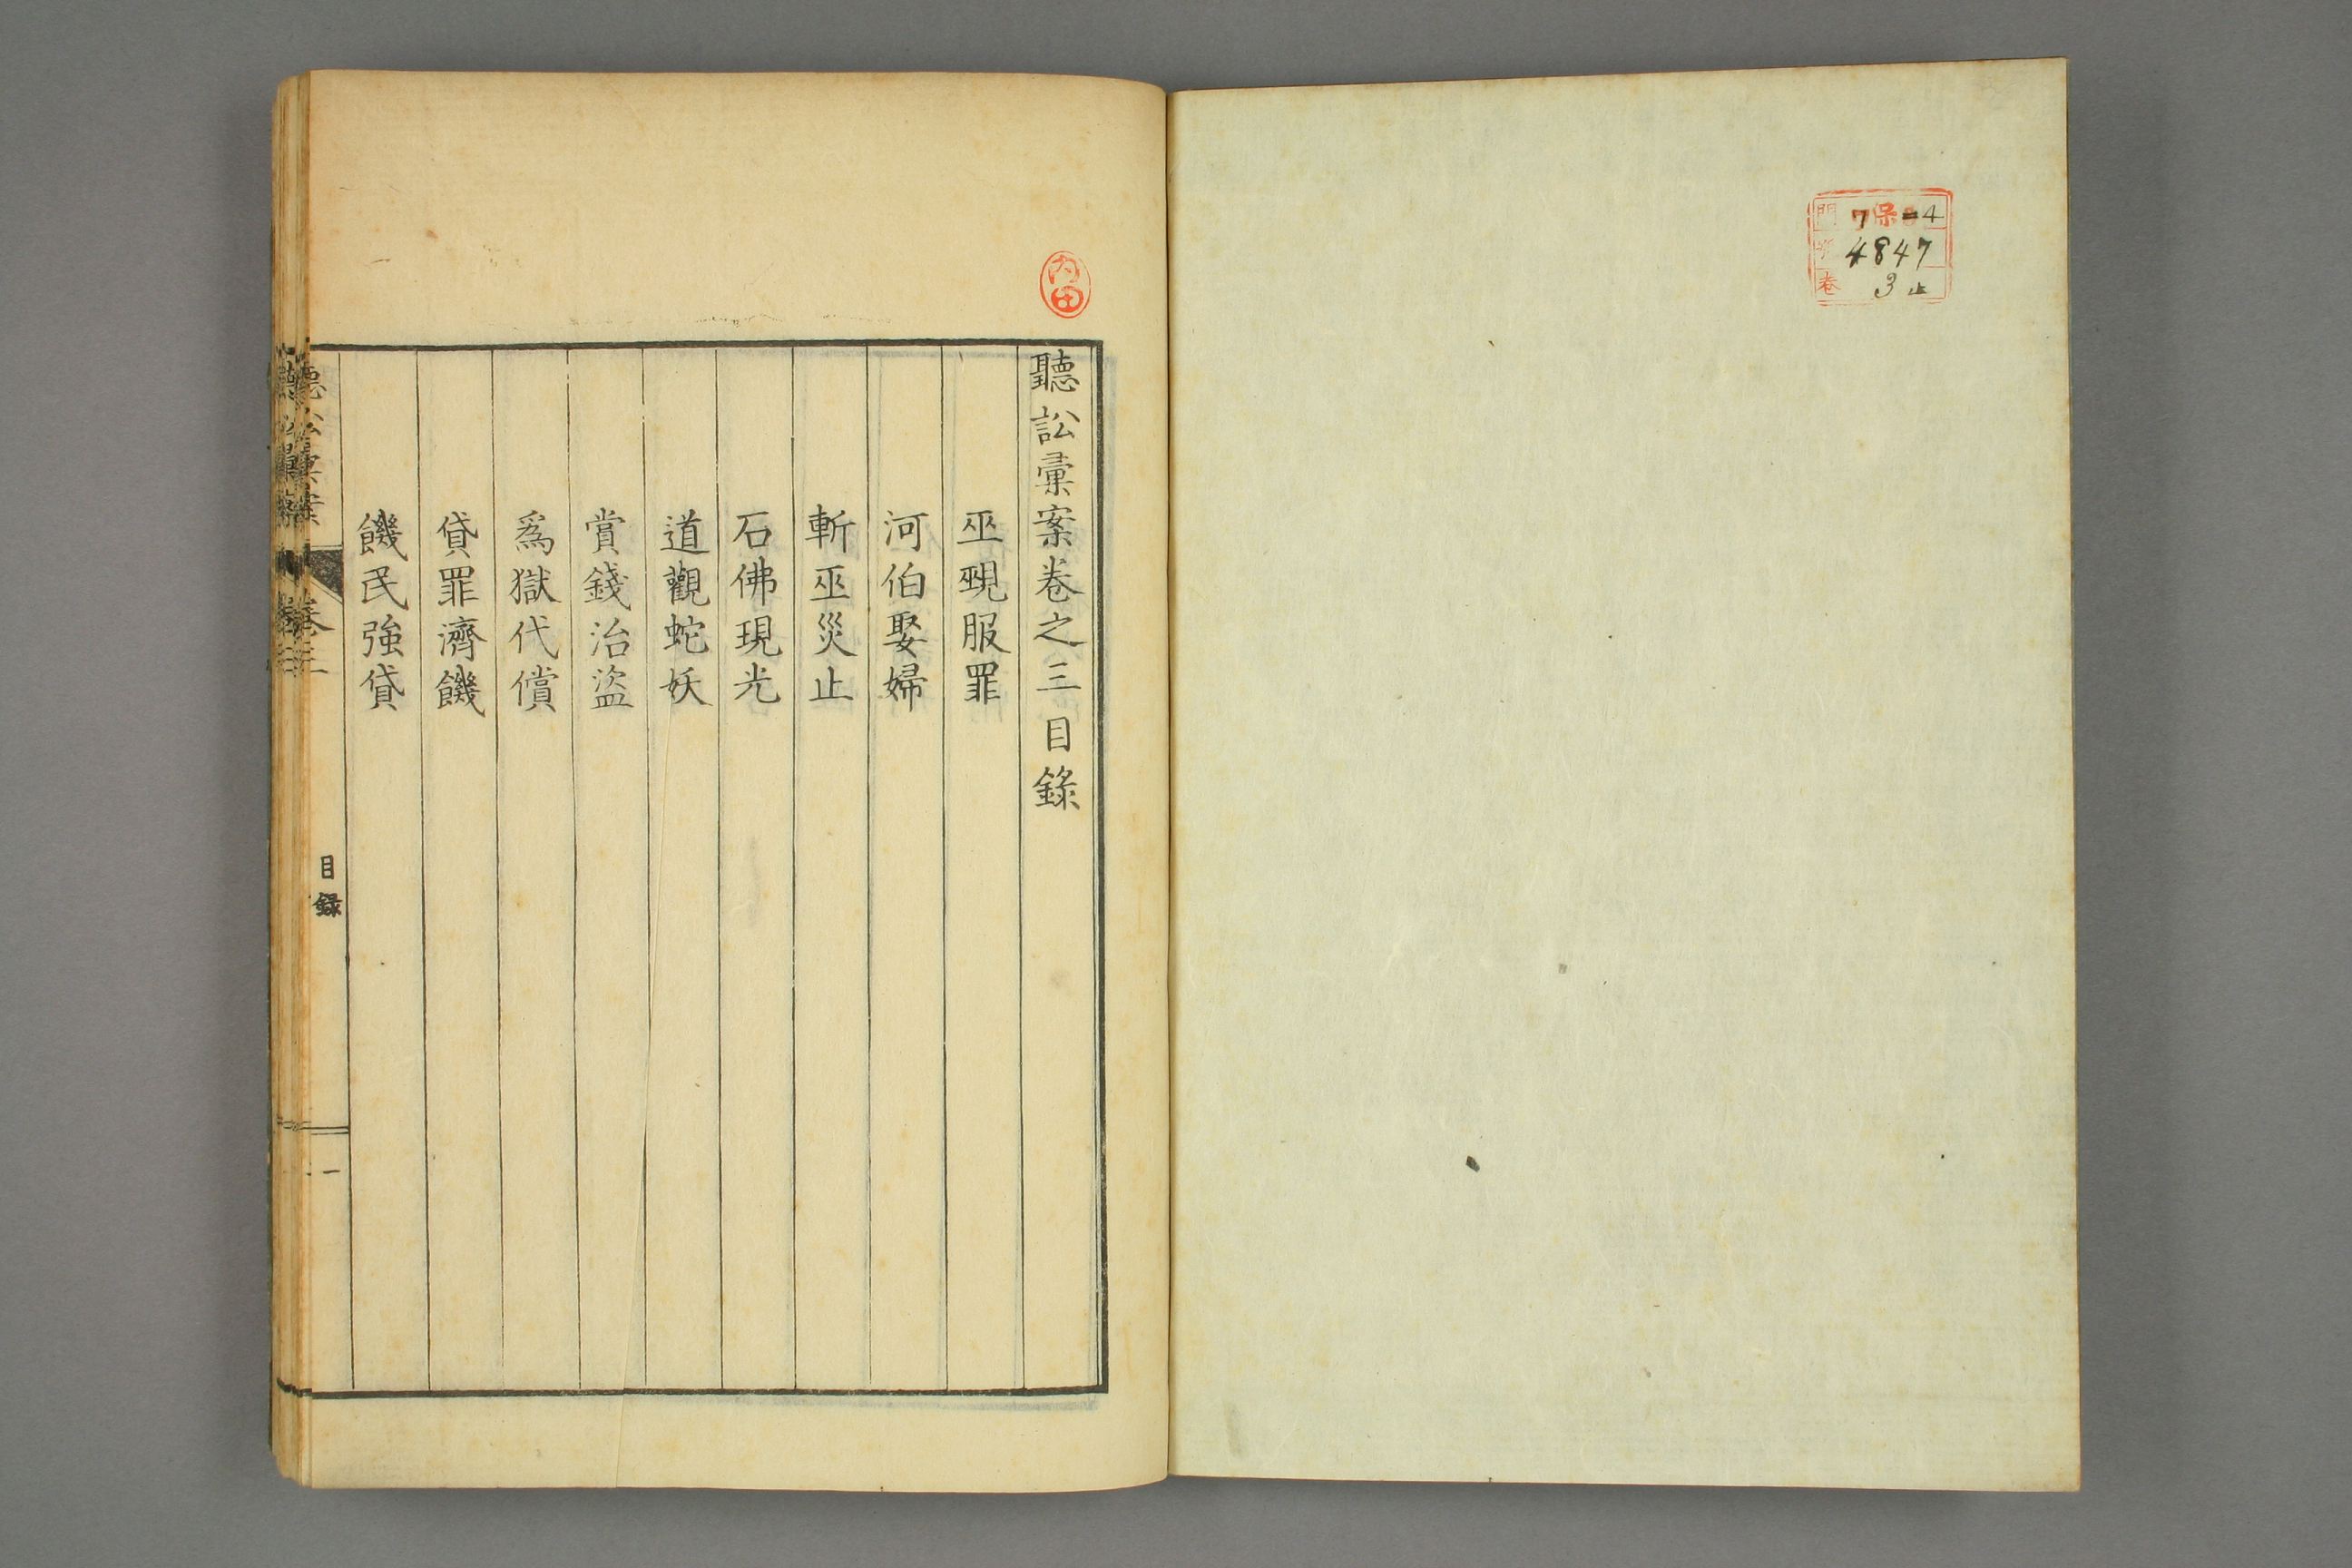 門 7保 4
號 4847
卷 3止
内田
聽訟彙案卷之三目錄
巫覡服罪
河伯娶婦
斬巫災止
石佛現光
道觀蛇妖
賞錢治盜
爲獄代償
貸罪濟饑
饑民強貸
聽訟彙案
卷三
目録
一